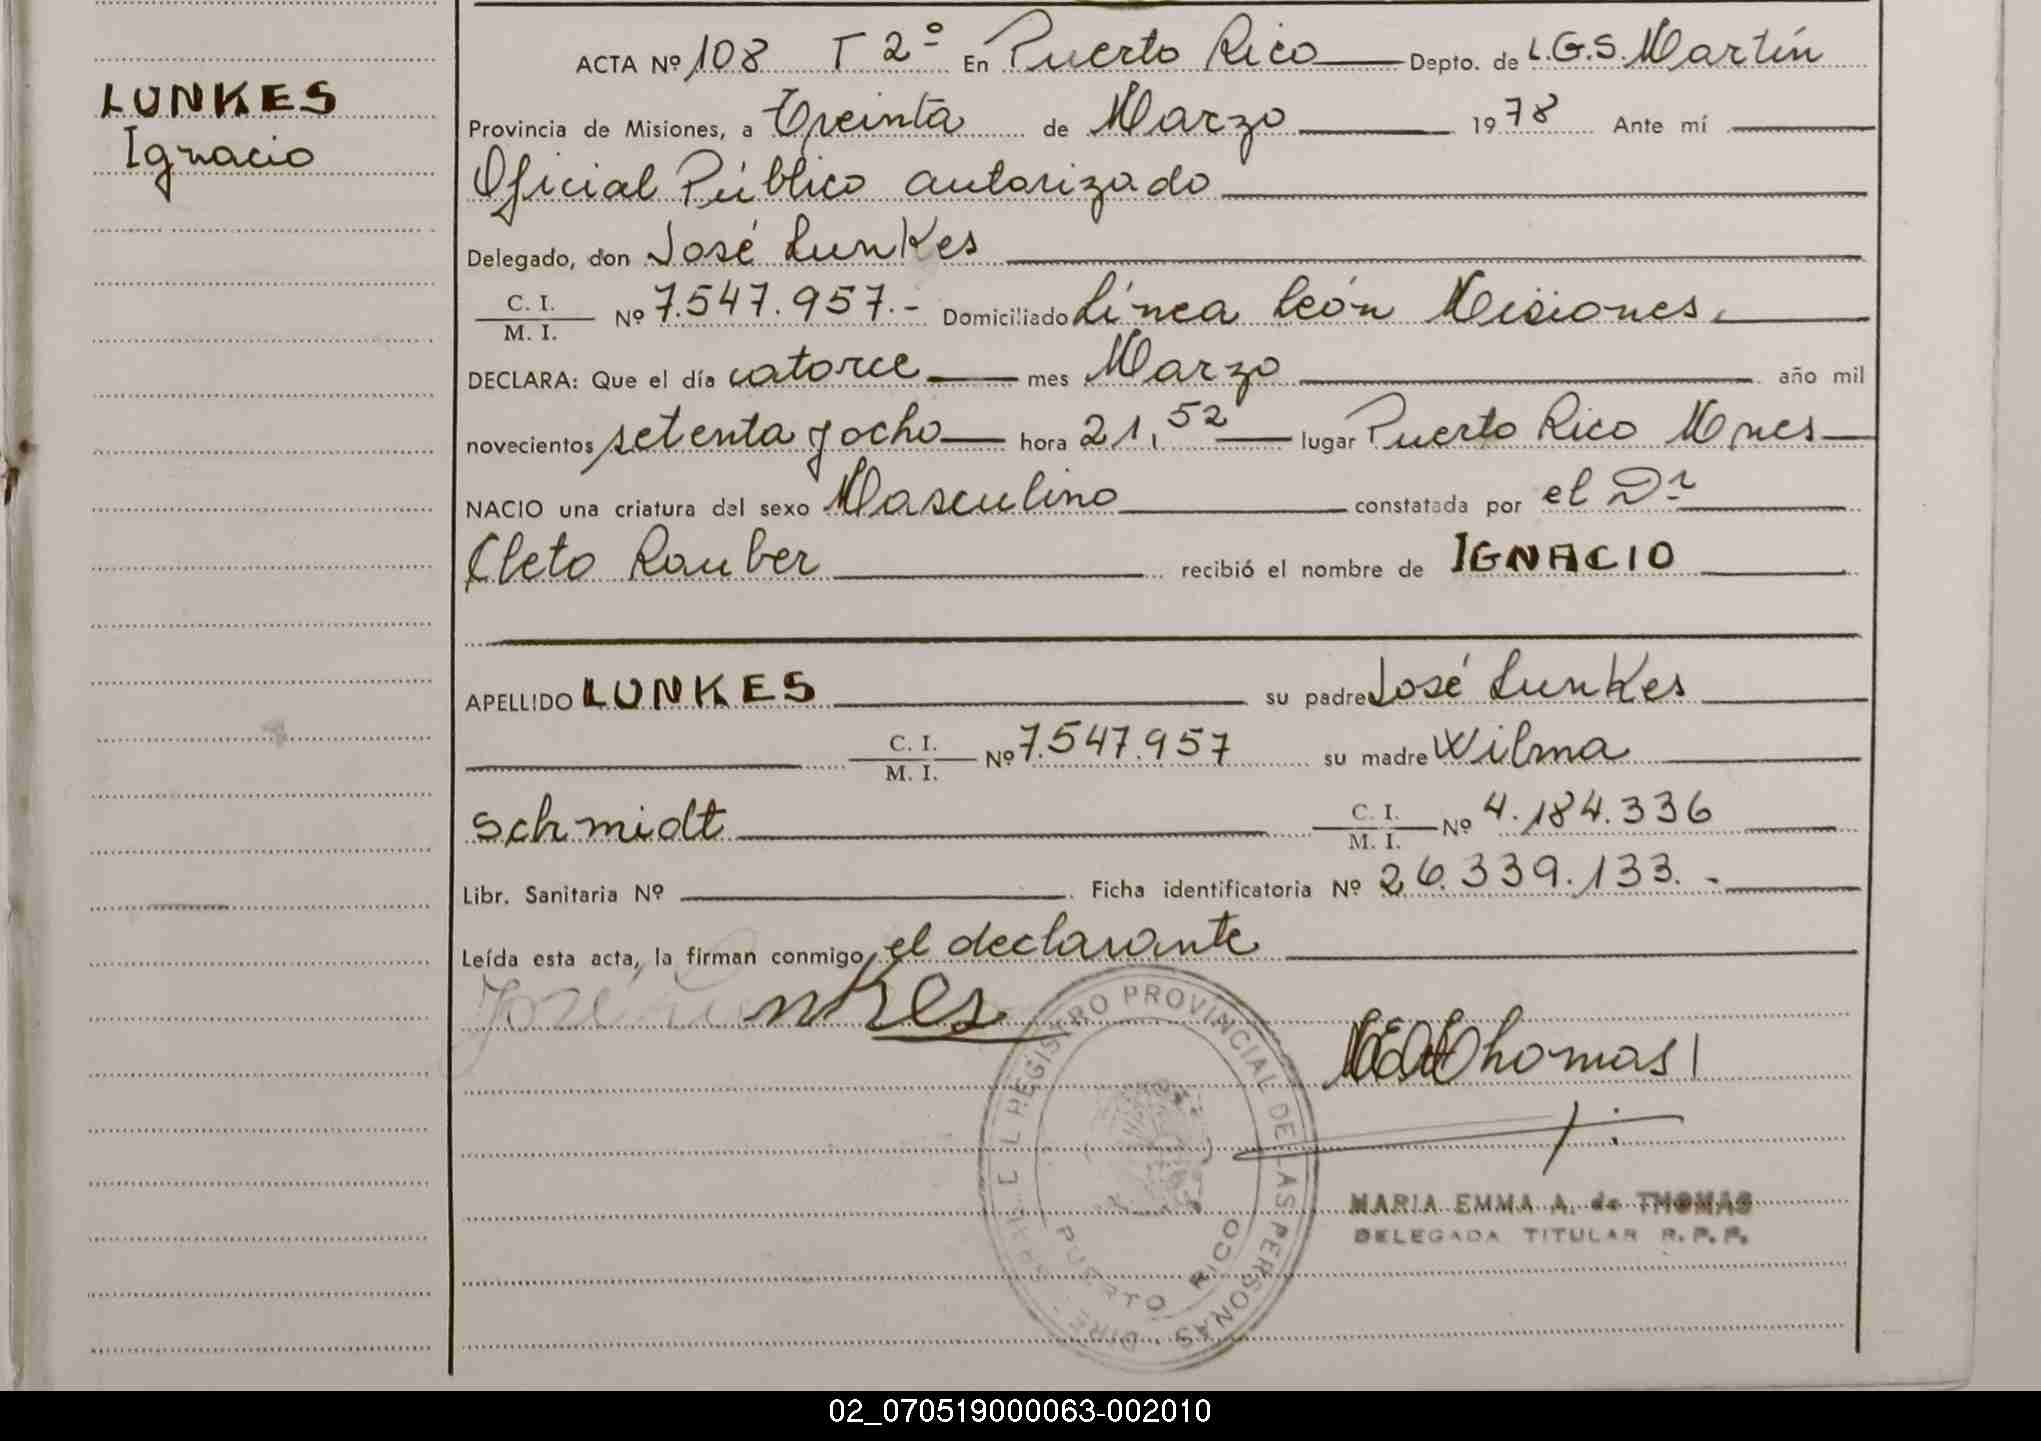 LUNKES
Ignacio
ACTA Nº 108 T 2º En Puerto Rico Depto. de L.G.S. Martín
Provincia de Misiones, a Treinta de Marzo 1978 Ante mí
Oficial Público autorizado
Delegado, don José Lunkes
C. I.
M. I. Nº 7.547.957.- Domiciliado Línea León Misiones.
DECLARA: Que el día catorce mes Marzo año mil
novecientos setenta y ocho hora 21,52 lugar Puerto Rico Mnes
NACIO una criatura del sexo Masculino constatada por el Dr
Cleto Rauber recibió el nombre de IGNACIO
APELLIDO LUNKES su padre José Lunkes
C. I.
M. I. Nº 7.547.957 su madre Wilma
Schmidt C. I.
M. I. Nº 4.184.336
Libr. Sanitaria Nº Ficha identificatoria Nº 26.339.133.-
Leída esta acta, la firman conmigo, el declarante
José Lunkes
Thomas
REGISTRO PROVINCIAL DE LAS PERSONAS
PUERTO RICO
MARIA EMMA A. de THOMAS
DELEGADA TITULAR R. P. P.
02_070519000063-002010